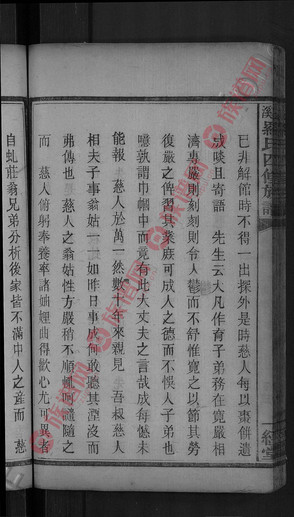 溪羅氏四修族譜
巳非解館時不得一出探外是時慈人每以棗餅遺
成啖且寄語　先生云大凡作育子弟務在寬嚴相
濟專嚴則刻刻則令人鬱而不舒惟寬之以節其勞
復嚴之俾習其業庶可成人之德而不悞人子弟也
噫孰謂巾幗中而竟有此大丈夫之言哉成每憾未
能報　慈人於萬一然數十年來親見　吾叔慈人
相夫子事翁姑一一如昨日事成何敢聽其湮沒而
弗傳也　慈人之翁姑性方嚴稍不順輒呵隨之
而　慈人俯躬奉養率諸姒娌曲得歡心尤可異者
自虬莊翁兄弟分析後家皆不滿中人之產而　慈